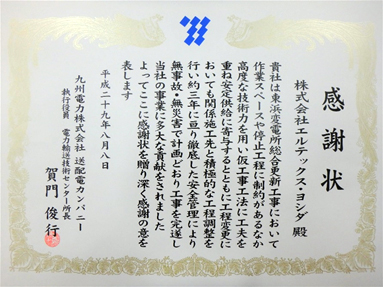 感謝状
株式会社エルテックス・ヨシダ 殿
貴社は東浜変電所総合更新工事において
作業スペースや停止工程に制約があるなか
高度な技術力を用い、仮工事工法に工夫を
重ね安定供給に寄与するとともに工程変更に
おいても関係施工先と積極的な工程調整を
行い約三年に亘り徹底した安全管理により
無事故・無災害で計画どおり工事を完遂し
当社の事業に多大な貢献をされました
よってここに感謝状を贈り深く感謝の意を
表します
平成二十九年八月八日
九州電力株式会社 送配電カンパニー
執行役員 電力輸送技術センター所長
賀門 俊行